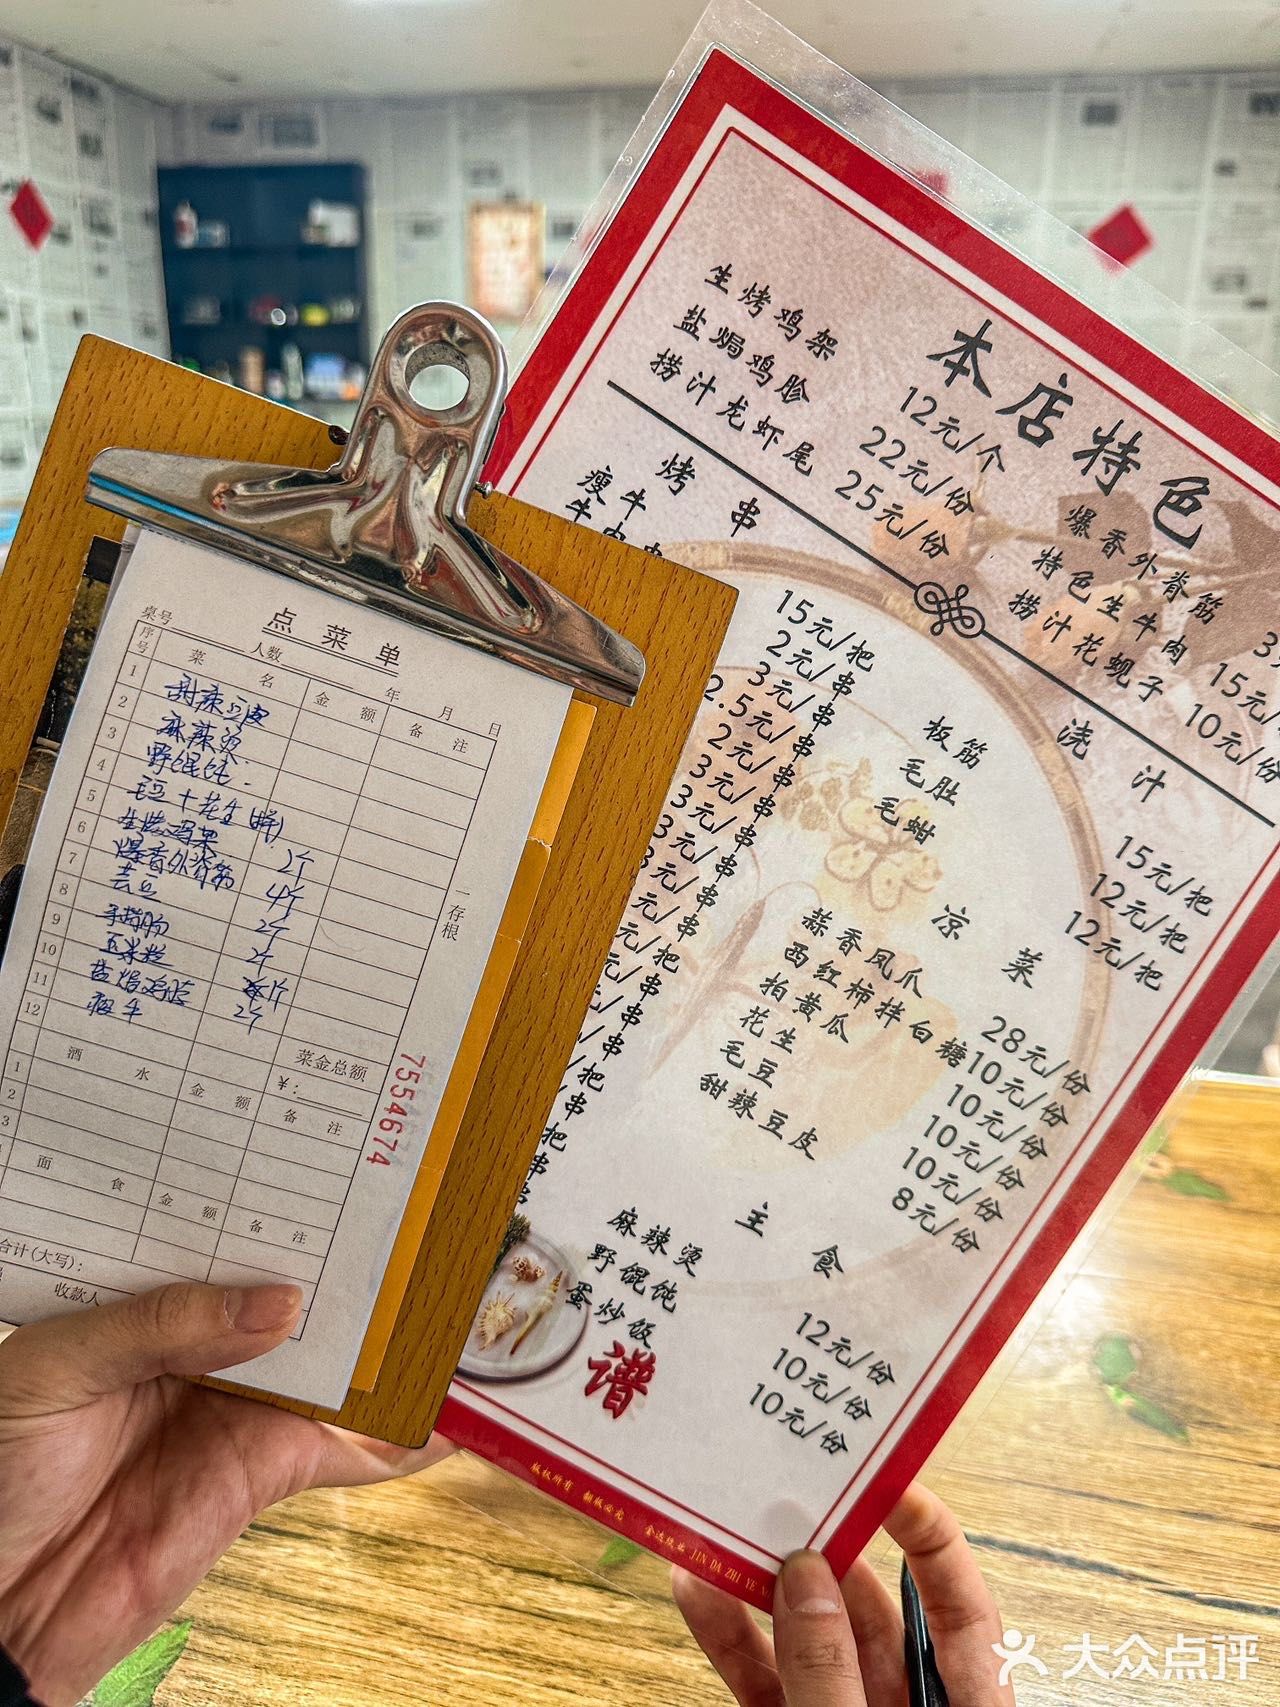 点菜单
桌号 人数 年 月 日
序号 菜名 金额 备注
1 甜辣豆皮
2 麻辣烫
3 野馄饨
4 毛豆+花生(拼)
5 生烤鸡架 2个
6 爆香外脊筋 4个
7 芸豆 2个
8 手撕肠 2个
9 玉米粒
10 盐焗鸡胗
11 瘦牛 2个
12
菜金总额
¥:
酒水 金额 备注
1
2
3
面食 金额 备注
合计(大写):
收款人
一存根
7554674
本店特色
生烤鸡架 12元/个
盐焗鸡胗 22元/份
捞汁龙虾尾 25元/份
爆香外脊筋
特色生牛肉 15元/
捞汁花蚬子 10元/份
烤串
瘦牛 15元/把
牛肉 2元/串
3元/串
2.5元/串
2元/串
3元/串
3元/串
3元/串
元/串
元/串
元/把
元/串
/串
/串
/把
串
把
串
浇汁
板筋 15元/把
毛肚 12元/把
毛蚶 12元/把
凉菜
蒜香凤爪 28元/份
西红柿拌白糖 10元/份
拍黄瓜 10元/份
花生 10元/份
毛豆 10元/份
甜辣豆皮 8元/份
主食
麻辣烫 12元/份
野馄饨 10元/份
蛋炒饭 10元/份
谱
版权所有 翻版必究 JIN DA ZHI YE
大众点评